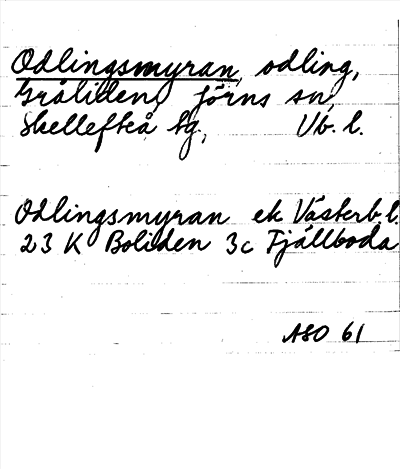 Odlingsmyran, odling,
Gråliden, Jörns sn,
Skellefteå tg, Vb. l.
Odlingsmyran ek Västerb. l.
23 K Boliden 3c Fjällboda
ASO 61